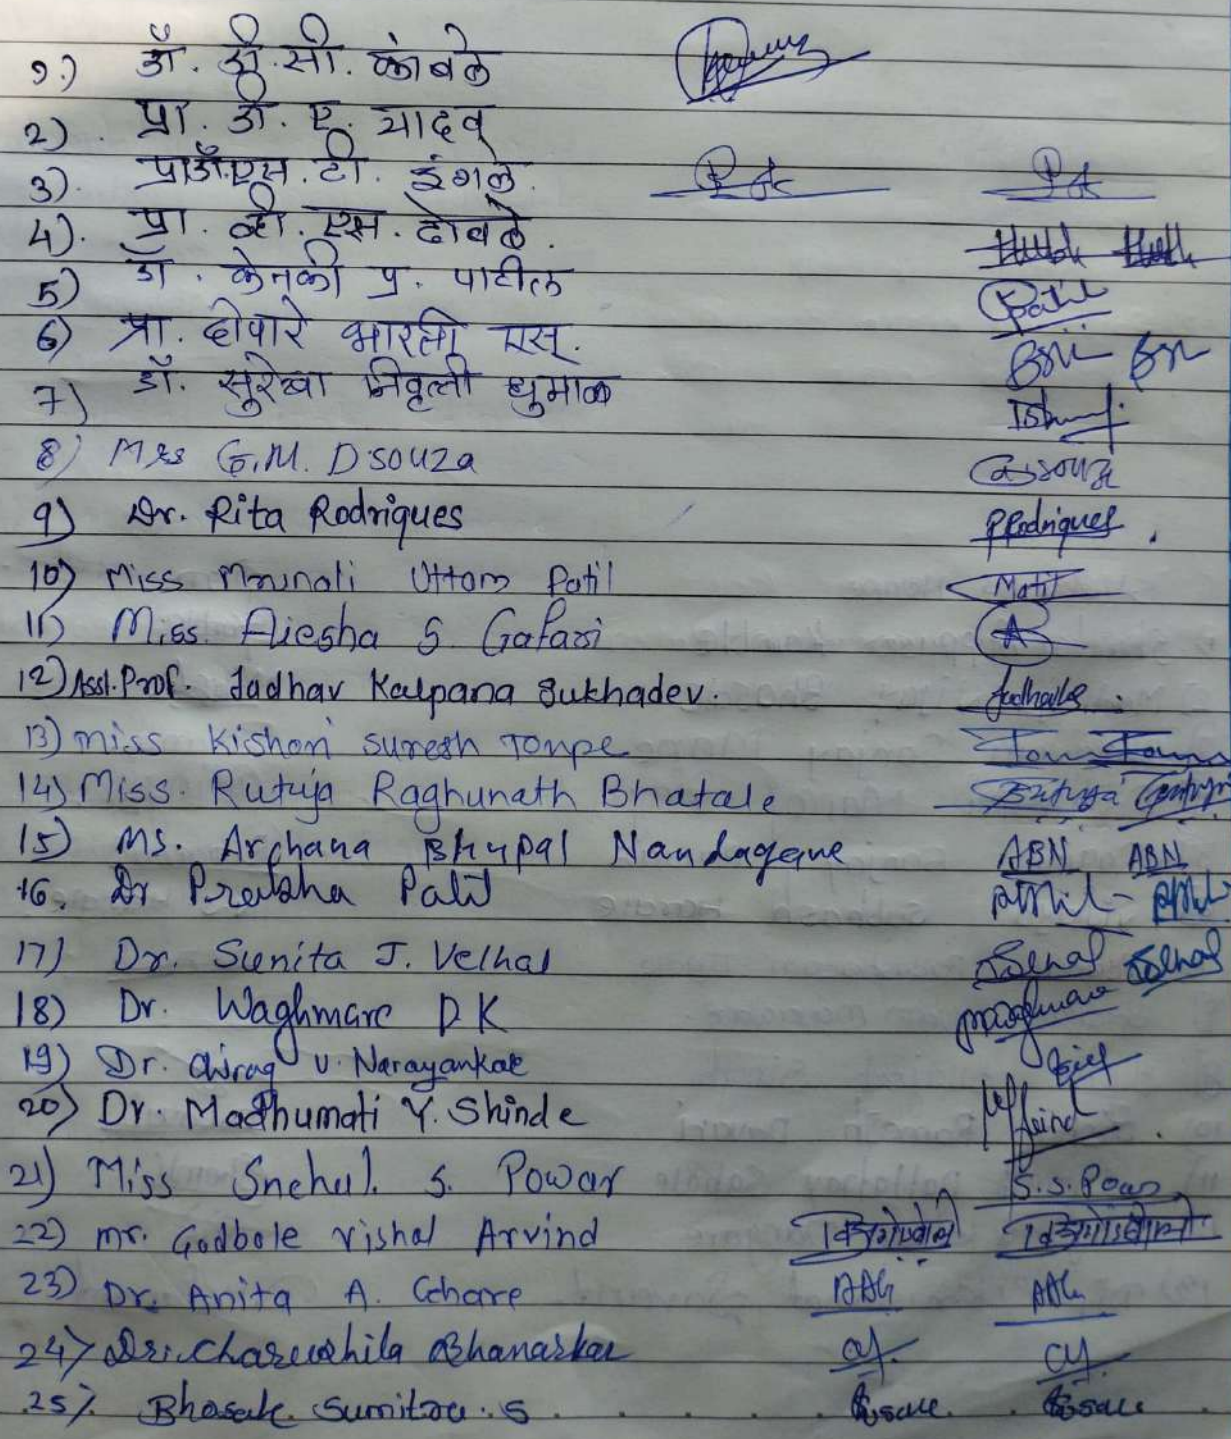 १.) डॉ. डी. सी. कांबळे
2). प्रा. डी. ए. यादव
3). प्रा.डॉ.एस. टी. इंगळे.
4). प्रा. व्ही. एस. ढोबळे.
5) डॉ. केतकी प्र. पाटील Patil
6) प्रा. ढोपारे भारती एस्.
7) डॉ. सुरेखा निवृत्ती धुमाळ
8) Mrs G.M. D'souza
9) Dr. Rita Rodriques RRodriques.
10) Miss Mrunali Uttam Patil
11) Miss. Aiesha S. Gafari A
12) Asst. Prof. Jadhav Kalpana Sukhadev.
13) miss Kishori Suresh Tonpe
14) Miss. Rutuja Raghunath Bhatale
15) Ms. Archana Bhupal Nandagane ABN ABN
16. Dr Pratibha Patil
17) Dr. Sunita J. Velhal
18) Dr. Waghmare D K
19) Dr. Chirag V. Narayankar
20) Dr. Madhumati Y. Shinde
21) Miss Snehal. S. Powar S.S. Powar
22) mr. Godbole vishal Arvind
23) Dr. Anita A. Ghare AAG AAG
24) Dr. Charushila Bhanarkar
25) Bhosale Sumitra. S